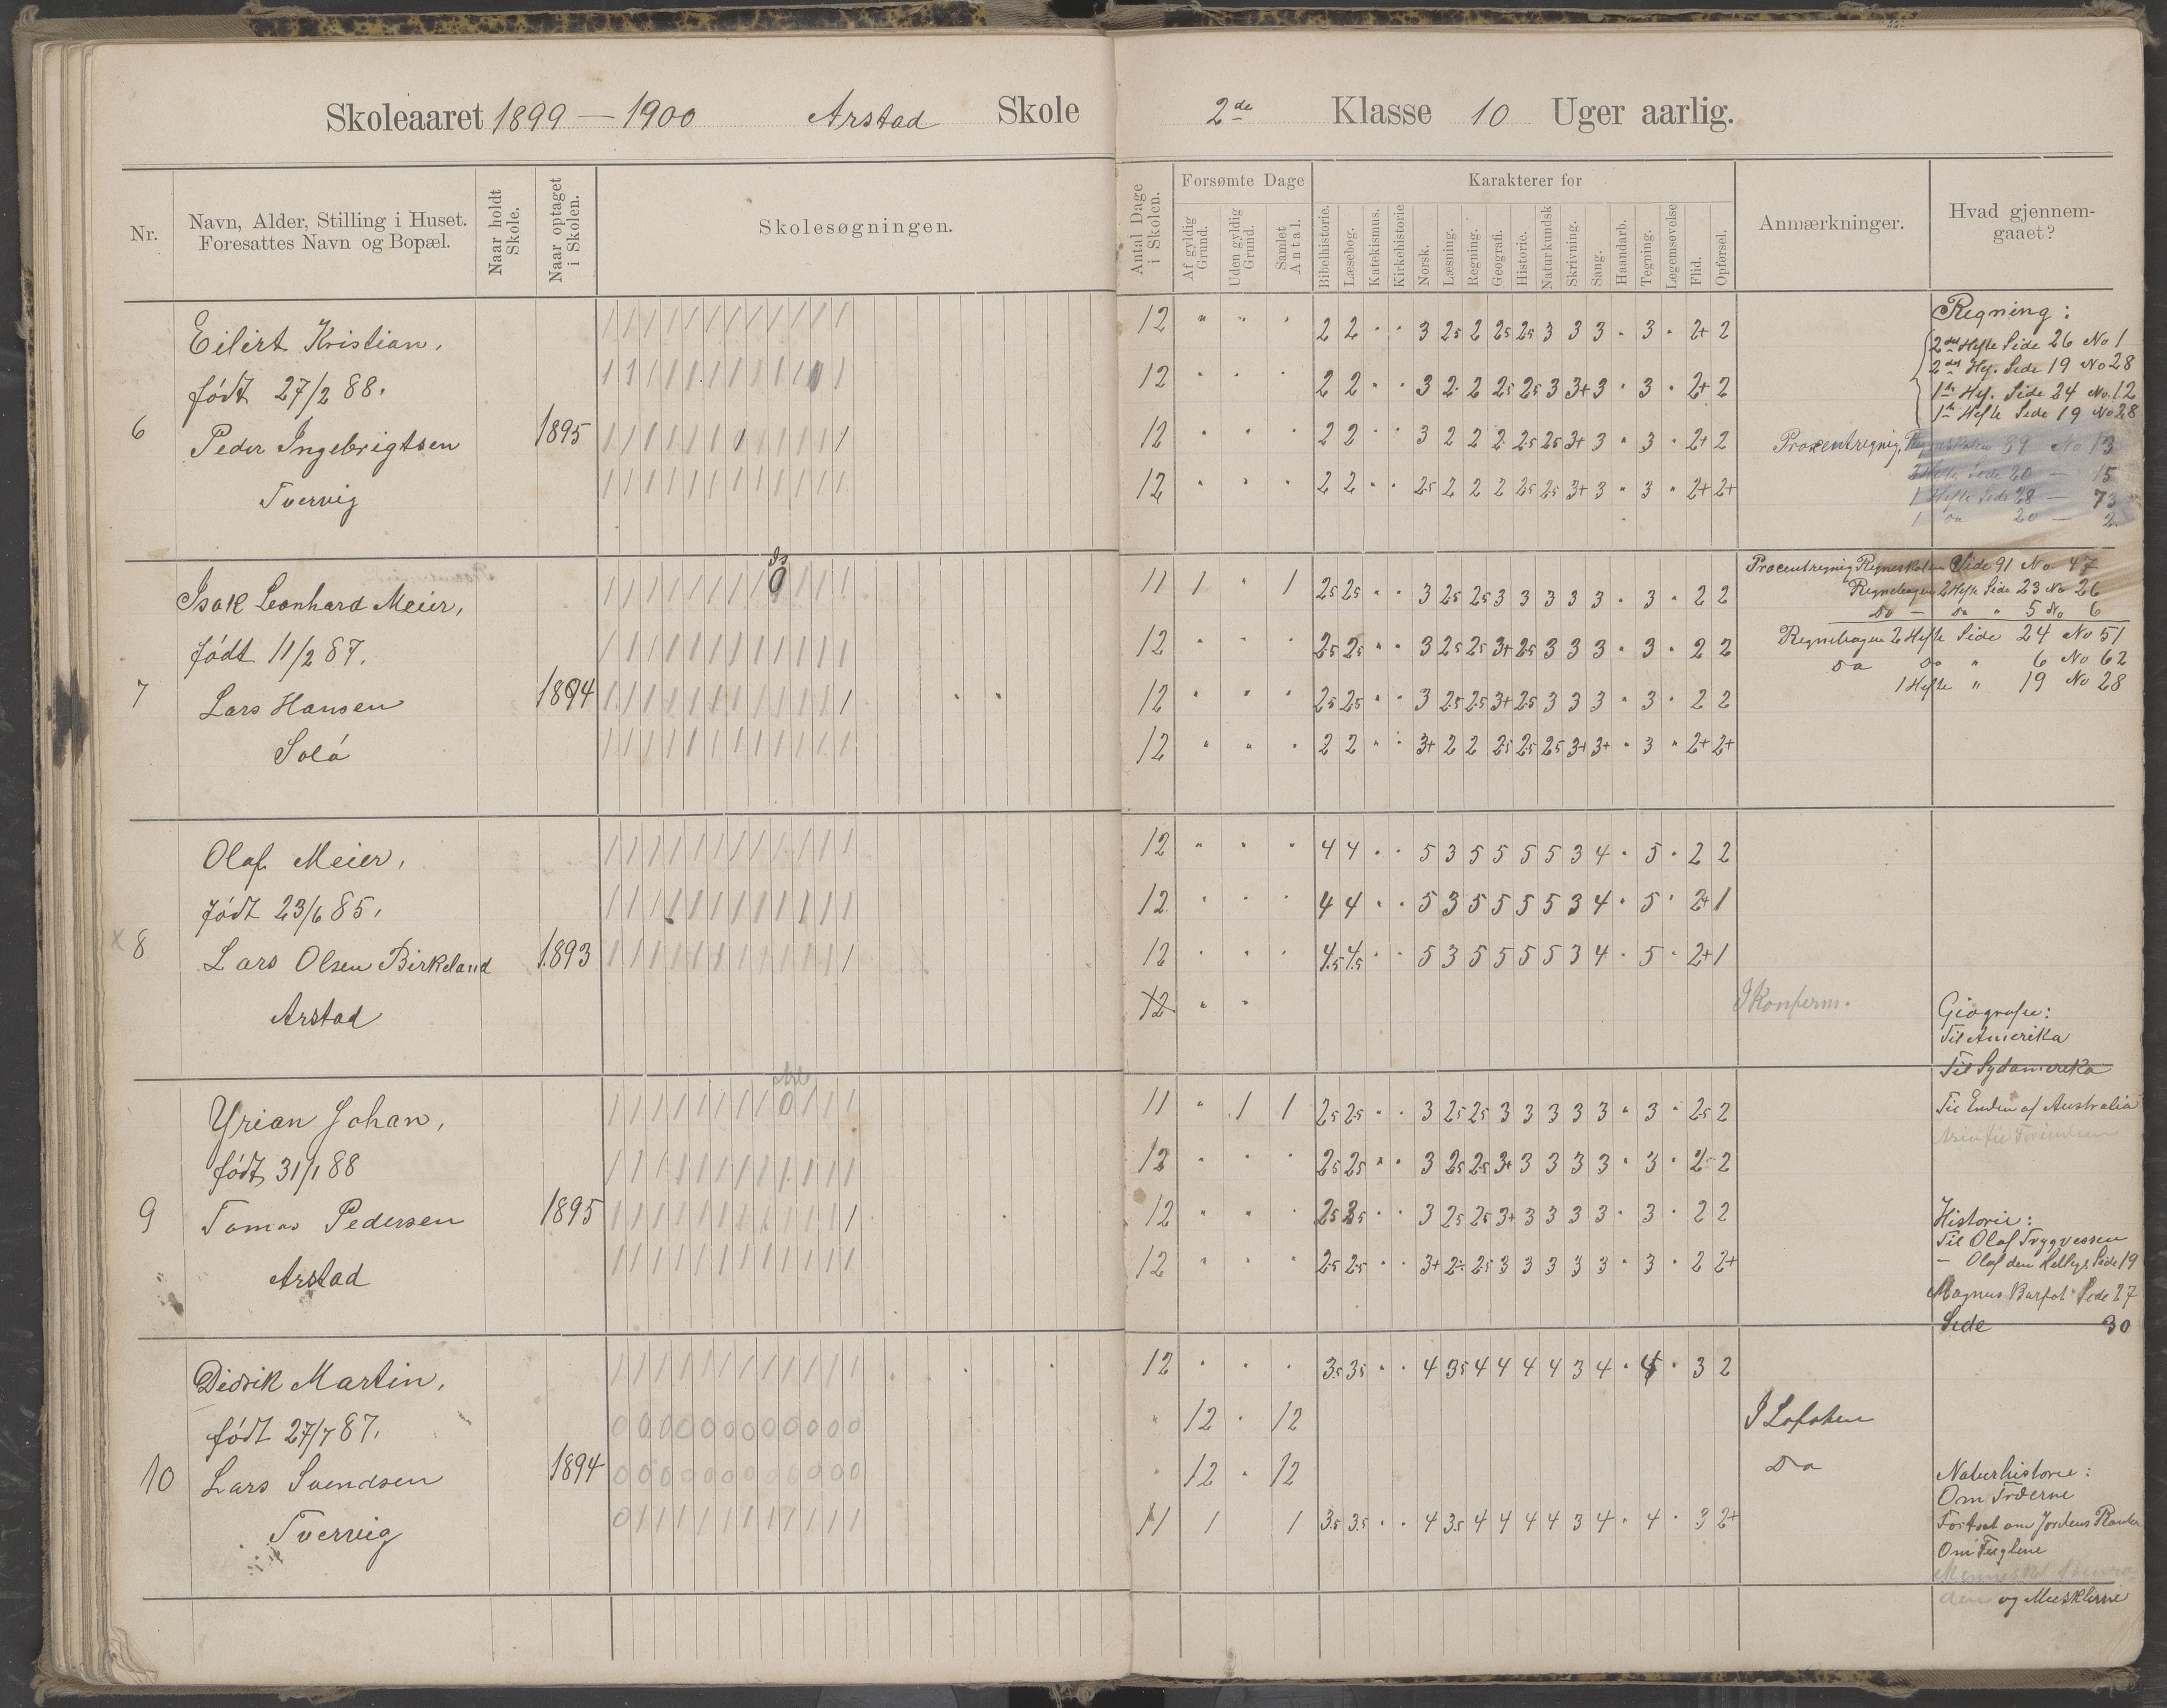 Skoleaaret 1899 — 1900 Arstad Skole 2de Klasse 10 Uger aarlig.
Nr.
Navn, Alder, Stilling i Huset.
Foresattes Navn og Bopæl.
Naar holdt Skole.
Naar optaget i Skolen.
Skolesøgningen.
Antal Dage i Skolen.
Forsømte Dage
Af gyldig Grund.
Uden gyldig Grund.
Samlet Antal.
Karakterer for
Bibelhistorie.
Læsebog.
Katekismus.
Kirkehistorie
Norsk.
Læsning.
Regning.
Geografi.
Historie.
Naturkundsk
Skrivning.
Sang.
Haandarb.
Tegning.
Legemsøvelse
Flid.
Opførsel.
Anmærkninger.
Hvad gjennem-
gaaet?
6
Eilert Kristian,
født 27/2 88.
Peder Ingebrigtsen
Tvervig
1895
12 " " " 2 2 " " 3 25 2 25 25 3 3 3 " 3 " 2+ 2
12 " " " 2 2 " " 3 2 2 25 25 3 3+ 3 " 3 " 2+ 2
12 " " " 2 2 " " 3 2 2 2 25 25 3+ 3 " 3 " 2+ 2
12 " " " 2 2 " " 25 2 2 2 25 25 3+ 3 " 3 " 2+ 2+
Regning:
2det Hefte Side 26 No 1
2det Hef. Side 19 No 28
1ste Hef. Side 24 No. 12
1ste Hefte Side 19 No 28
Procentregnig, Regneskolen 89 No 13
2 Hefte Side 20 — 15
1 Hefte Side 28 — 73
1 Do 20 — 2
7
Isak Leonhard Meier,
født 11/2 87.
Lars Hansen
Solå
1894
0
11 1 " 1 25 25 " " 3 25 25 3 3 3 3 3 " 3 " 2 2
12 " " " 25 25 " " 3 25 25 3+ 25 3 3 3 " 3 " 2 2
12 " " " 25 25 " " 3 25 25 3+ 25 3 3 3 " 3 " 2 2
12 " " " 2 2 " " 3+ 2 2 25 25 25 3+ 3+ " 3 " 2+ 2+
Procentregnig Regneskolen Side 91 No 47
Regnebogen 2 Hefte Side 23 No 26
Do — Do " 5 No 6
Regnebogen 2 Hefte Side 24 No 51
Do Do " 6 No 62
1 Hefte " 19 No 28
x 8
Olaf Meier,
født 23/6 85,
Lars Olsen Birkeland
Arstad
1893
12 " " " 4 4 " " 5 3 5 5 5 5 3 4 " 5 " 2 2
12 " " " 4 4 " " 5 3 5 5 5 5 3 4 " 5 " 2+ 1
12 " " " 4.5 4.5 " " 5 3 5 5 5 5 3 4 " 5 " 2+ 1
12 " "
I Konferm.
Geografie:
Til Amerika
Til Sydamerika
Til Enden af Australia
9
Yrian Johan,
født 31/1 88
Tomas Pedersen
Arstad
1895
0
11 " 1 1 25 25 " " 3 25 25 3 3 3 3 3 " 3 " 25 2
12 " " " 25 25 " " 3 25 25 3+ 3 3 3 3 " 3 " 2 2
12 " " " 25 25 " " 3 25 25 3+ 3 3 3 3 " 3 " 2 2
12 " " " 25 25 " " 3+ 2 25 3 3 3 3 3 " 3 " 2 2+
Historie:
Til Olaf Tryggvessen
— Olaf den Hellige Side 19
Magnus Barfot Side 27
Side 30
10
Didrik Martin,
født 27/7 87.
Lars Svendsen
Tvervig
1894
0 0 0 0 0 0 0 0 0 0 0 0
0 0 0 0 0 0 0 0 0 0 0 0
0
12 " " " 35 35 " " 4 35 4 4 4 4 3 4 " 4 " 3 2
" 12 " 12 I Lofoten
" 12 " 12 Do
11 1 1 3.5 3.5 " " 4 3.5 4 4 4 4 3 4 " 4 " 3 2+
Naturhistorie:
Om Træerne
Fortsat om Jordens
Om Fuglene
og Musklerne